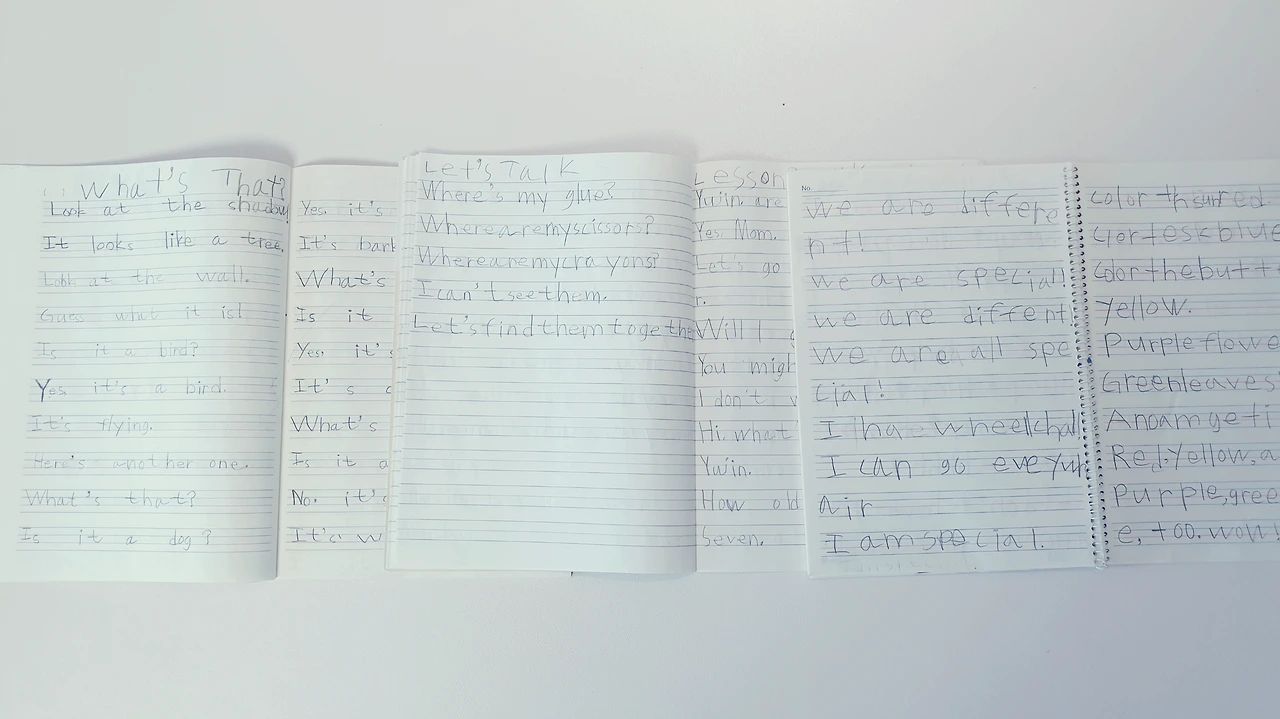 What's That?
Look at the shadow
It looks like a tree.
Look at the wall.
Guess what it is!
Is it a bird?
Yes. it's a bird.
It's flying.
Here's another one.
What's that?
Is it a dog?
Yes. it's
It's bark
What's
Is it
Yes. it's
It's
What's
Is it a
No. it's
It's w
Let's Talk
Where's my glue?
Wherearemyscissors?
Wherearemycra yons?
I can'tseethem.
Let'sfindthemtogethe
Lesson
Yujin are
Yes, Mom.
Let's go
r.
Will
You migh
I don't
Hi. what
Yujin.
How old
Seven.
No.
we are differe
nt!
we are special!
we are diffent
we are all spe
cial!
I ha wheelchai
I can go
air
I am special.
color
blue
Colorthebutt
Yellow.
Purpleflowe
Greenleaves
Red.Yellow,a
Purple,gree
e, too. wow!